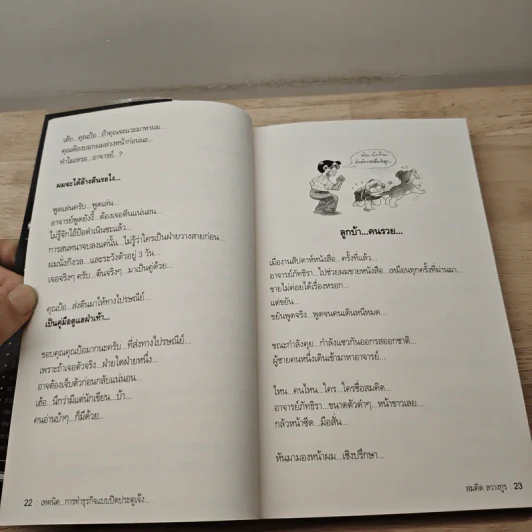 เฮ้ย...คุณป้อ...ถ้าคุณจะแวะมาหาผม...
คุณต้องบอกผมล่วงหน้าก่อนนะ...
ทำไมเหรอ...อาจารย์...?
ผมจะได้ล้างตีนรอไง...
พูดเล่นครับ...พูดเล่น...
อาจารย์พูดยังงี้...ต้องเจอตีนแน่นอน...
ไม่รู้จักไอ้ป้อดำเนินซะแล้ว...
การสนทนาจบลงแค่นั้น...ไม่รู้ว่าใครเป็นฝ่ายวางสายก่อน...
ผมนั่งกังวล...และระวังตัวอยู่ 3 วัน...
เจอจริงๆ ครับ...ตีนจริงๆ...มาเป็นคู่ด้วย...
คุณป้อ...ส่งตีนมาให้ทางไปรษณีย์...
เป็นคู่มือดูแลฝ่าเท้า...
ขอบคุณคุณป้อมากนะครับ...ที่ส่งทางไปรษณีย์...
เพราะถ้าเจอตัวจริง...ฝ่ายใดฝ่ายหนึ่ง...
อาจต้องเจ็บตัวก่อนกลับแน่นอน...
เฮ้อ...นึกว่ามีแต่นักเขียน...บ้า...
คนอ่านบ้าๆ...ก็มีด้วย...
22 เทคนิค...การทำธุรกิจแบบปิดประตูเจ๊ง...
ลูกบ้า...คนรวย...
เมื่องานสัปดาห์หนังสือ...ครั้งที่แล้ว...
อาจารย์ภัทธิรา...ไปช่วยผมขายหนังสือ...เหมือนทุกครั้งที่ผ่านมา...
ขายไม่ค่อยได้เรื่องหรอก...
แต่ขยัน...
ขยันพูดจริง...พูดจนคนเดินหนีหมด...
ขณะกำลังคุย...กำลังแซวกันออกรสออกชาติ...
ผู้ชายคนหนึ่งเดินเข้ามาหาอาจารย์...
ไหน...คนไหน...ใคร...ใครชื่อสมคิด...
อาจารย์ภัทธิรา...ขนาดตัวดำๆ...หน้าขาวเลย...
กลัวหน้าซีด...มือสั่น...
หันมามองหน้าผม...เชิงปรึกษา...
สมคิด ลวางกูร 23